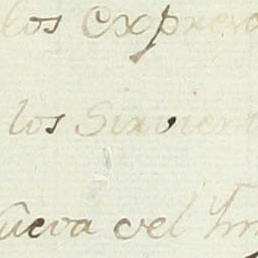 los expresa
los Sirvient
nueva del Ym